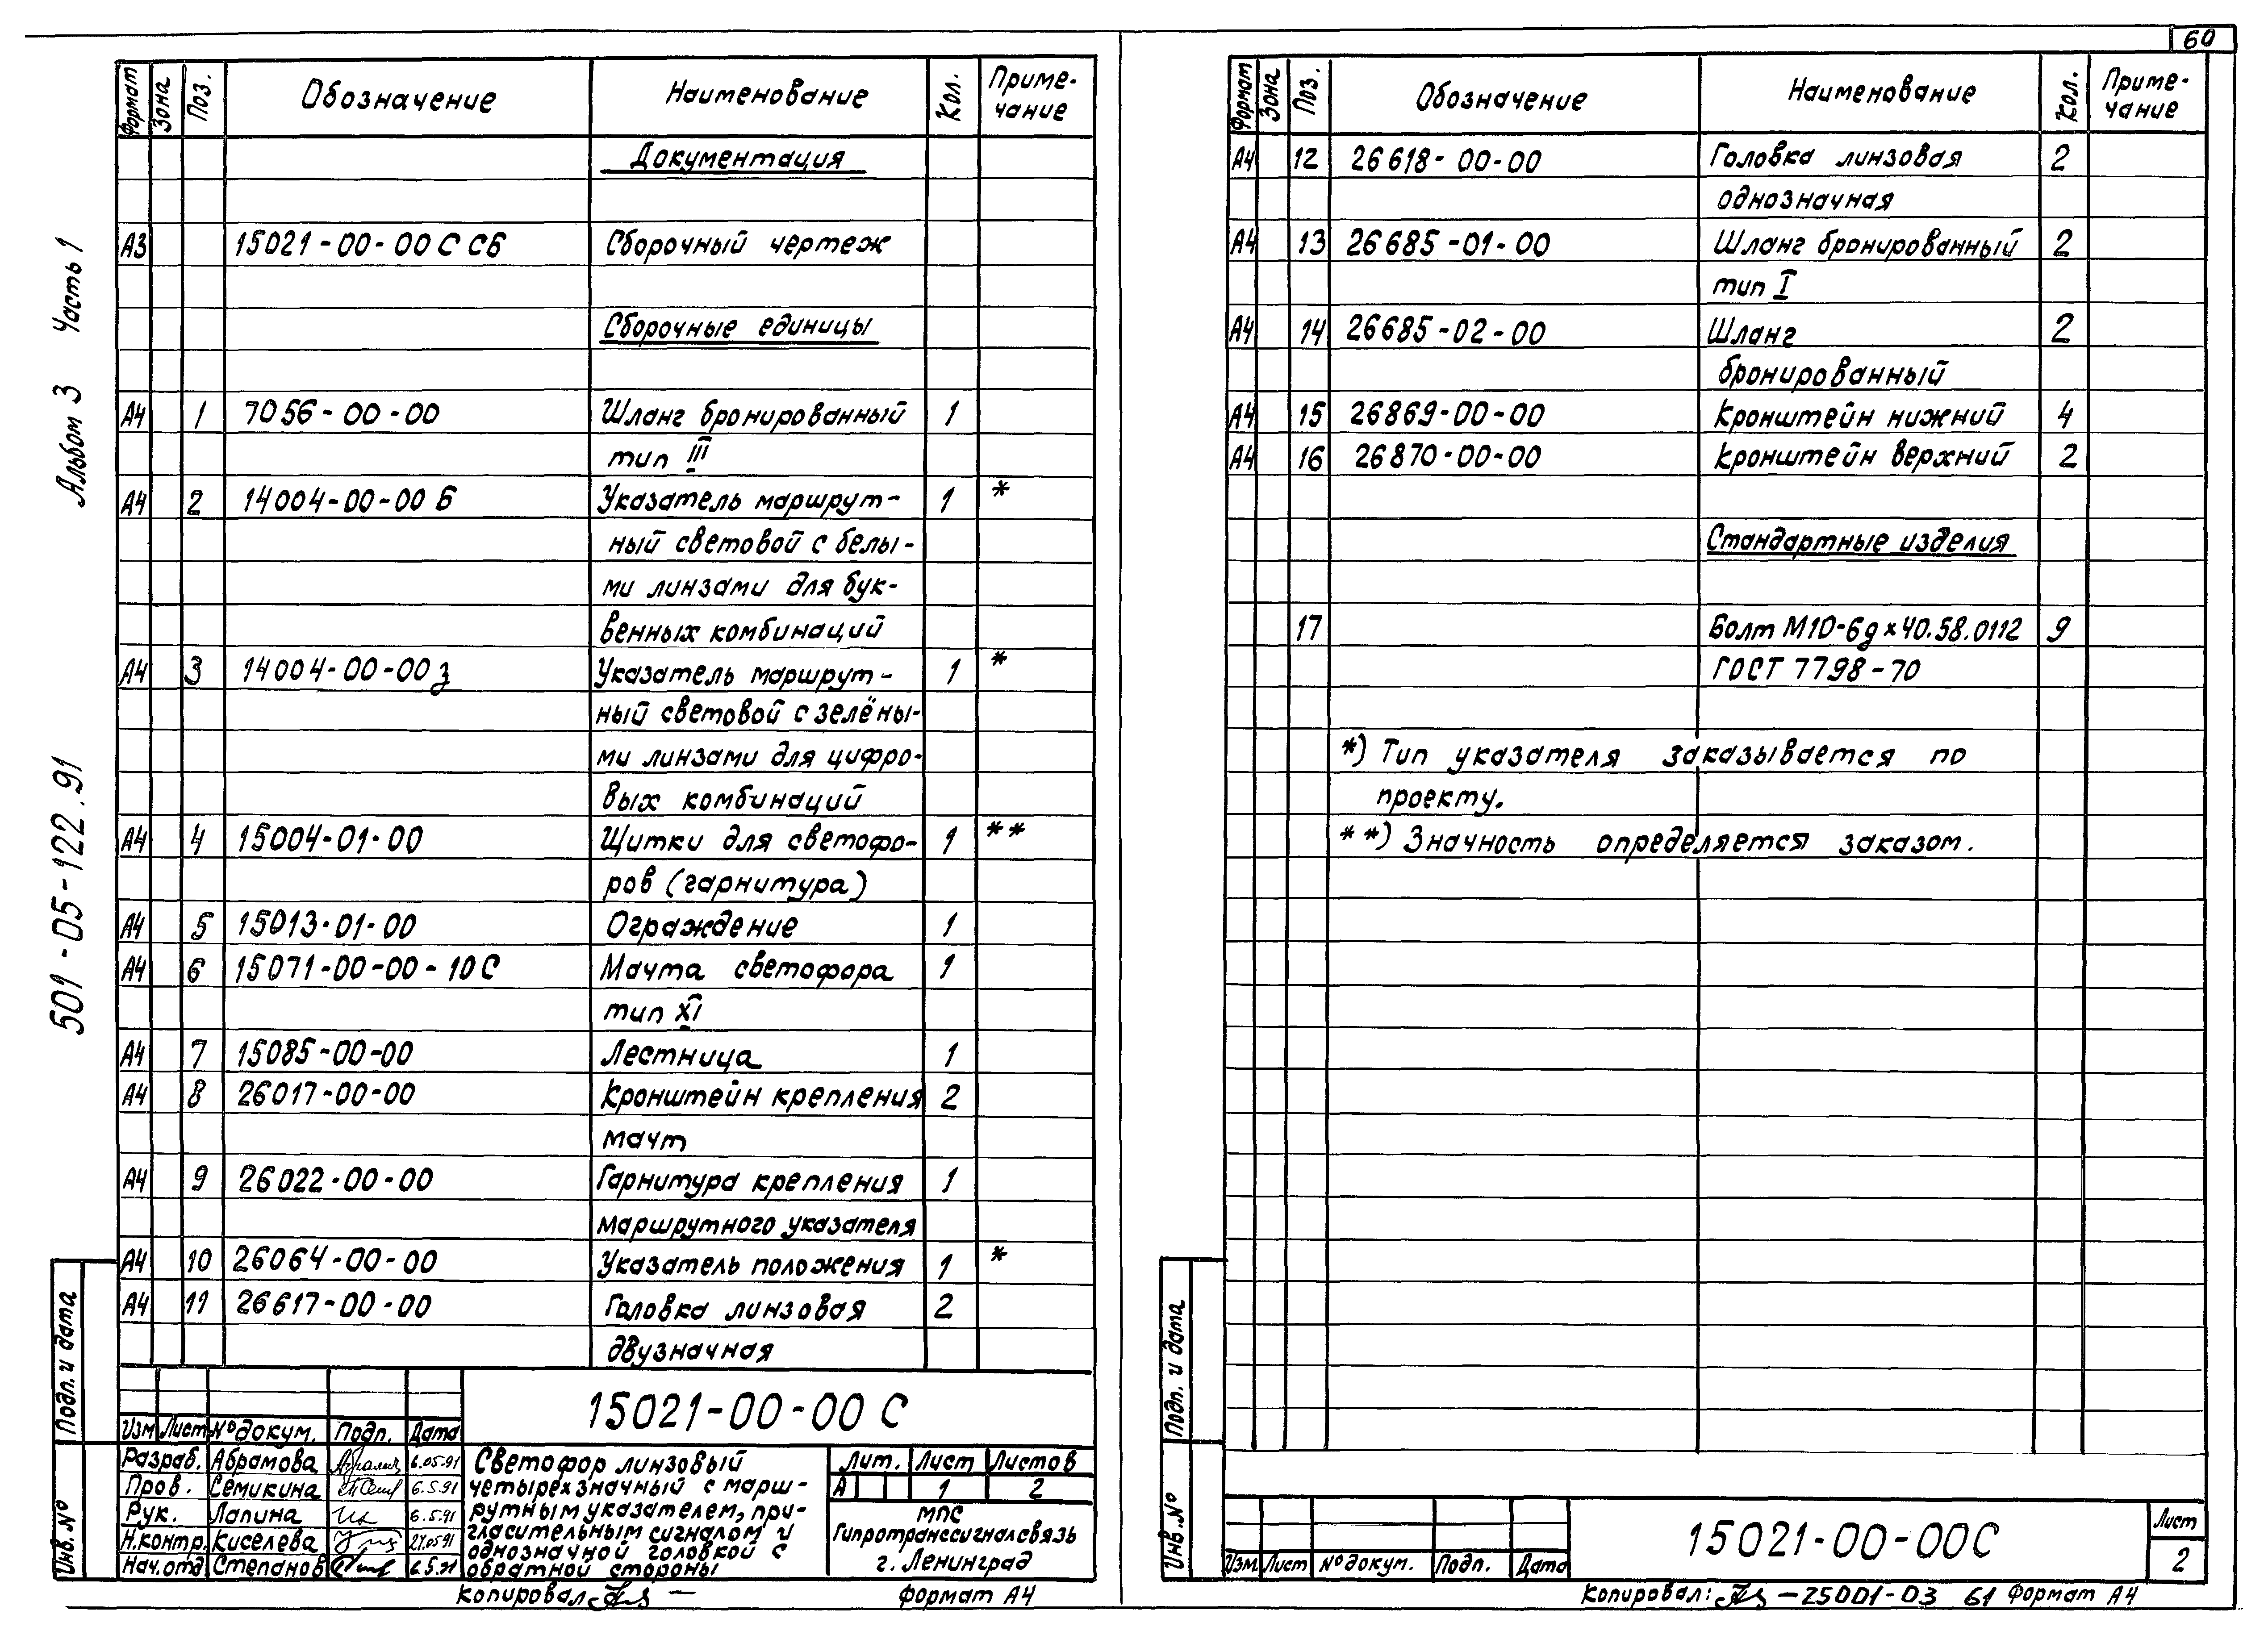 60
Альбом 3 Часть 1
501-05-122.91
Формат Зона Поз. Обозначение Наименование Кол. Приме-
чание
Документация
А3 15021-00-00 С СБ Сборочный чертеж
Сборочные единицы
А4 1 7056-00-00 Шланг бронированный 1
тип III
А4 2 14004-00-00 Б Указатель маршрут- 1 *
ный световой с белы-
ми линзами для бук-
венных комбинаций
А4 3 14004-00-00 з Указатель маршрут- 1 *
ный световой с зелёны-
ми линзами для цифро-
вых комбинаций
А4 4 15004-01-00 Щитки для светофо- 1 **
ров (гарнитура)
А4 5 15013-01-00 Ограждение 1
А4 6 15071-00-00-10С Мачта светофора 1
тип XI
А4 7 15085-00-00 Лестница 1
А4 8 26017-00-00 Кронштейн крепления 2
мачт
А4 9 26022-00-00 Гарнитура крепления 1
маршрутного указателя
А4 10 26064-00-00 Указатель положения 1 *
А4 11 26617-00-00 Головка линзовая 2
двузначная
15021-00-00 С
Изм Лист № докум. Подп. Дата
Разраб. Абрамова 6.05.91
Пров. Семикина 6.5.91
Рук. Лапина 6.5.91
Н.контр. Киселева 27.05.91
Нач.отд Степанов 6.5.91
Светофор линзовый
четырехзначный с марш-
рутным указателем, при-
гласительным сигналом и
однозначной головкой с
обратной стороны
Лит. Лист Листов
А 1 2
МПС
Гипротранссигналсвязь
г. Ленинград
Подп. и дата
Инв. №
Копировал
Формат А4
Формат Зона Поз. Обозначение Наименование Кол. Приме-
чание
А4 12 26618-00-00 Головка линзовая 2
однозначная
А4 13 26685-01-00 Шланг бронированный 2
тип I
А4 14 26685-02-00 Шланг 2
бронированный
А4 15 26869-00-00 Кронштейн нижний 4
А4 16 26870-00-00 Кронштейн верхний 2
Стандартные изделия
17 Болт М10-6gх40.58.0112 9
ГОСТ 7798-70
*) Тип указателя заказывается по
проекту.
**) Значность определяется заказом.
Подп. и дата
Инв. №
Изм. Лист № докум. Подп. Дата
15021-00-00С
Лист
2
Копировал: - 25001-03 61 Формат А4